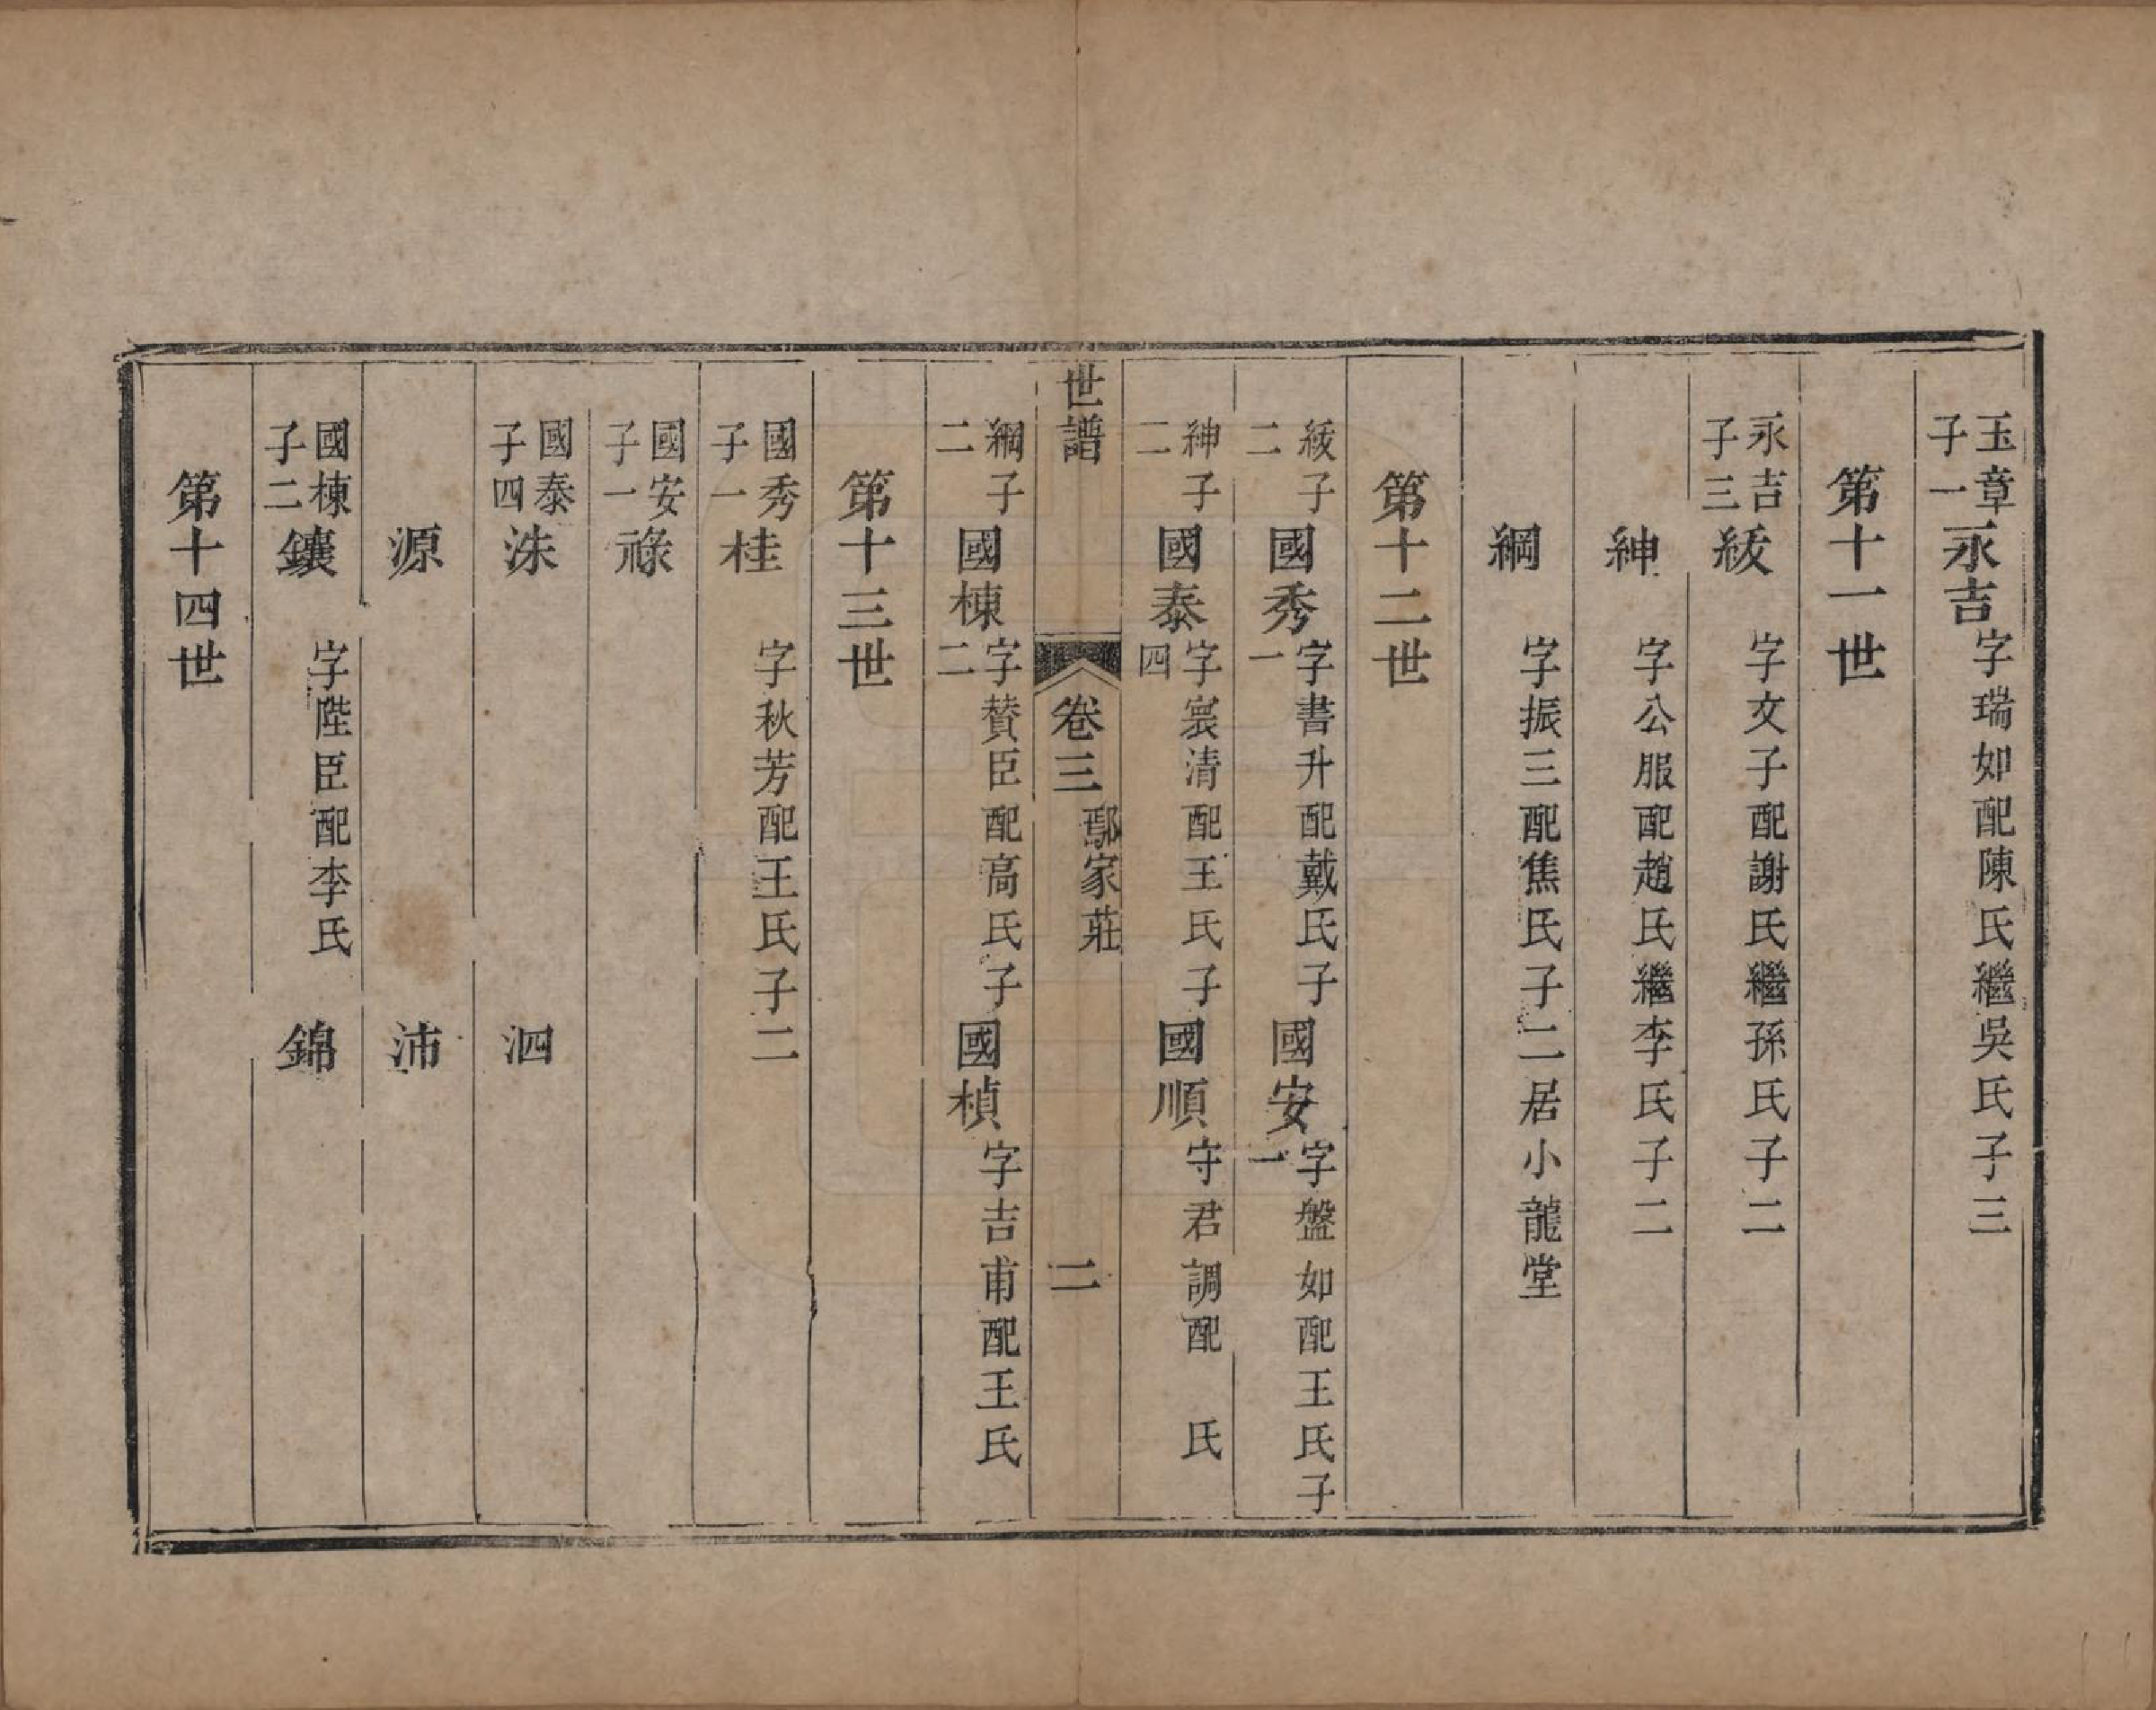 玉章子一永吉字瑞如配陳氏繼吳氏子三
第十一世
永吉子三紱字文子配謝氏繼孫氏子二
紳字公服配趙氏繼李氏子二
綱字振三配焦氏子二居小龍堂
第十二世
紱子二國秀字書升配戴氏子一國安字盤如配王氏子一
紳子二國泰字寰清配王氏子四國順字君調配 氏
世譜 卷三 鄢家莊 二
綱子二國棟字贊臣配高氏子二國楨字吉甫配王氏
第十三世
國秀子一桂字秋芳配王氏子二
國安子一祿
國泰子四洙 泗
源 沛
國棟子二鑲字陛臣配李氏 錦
第十四世